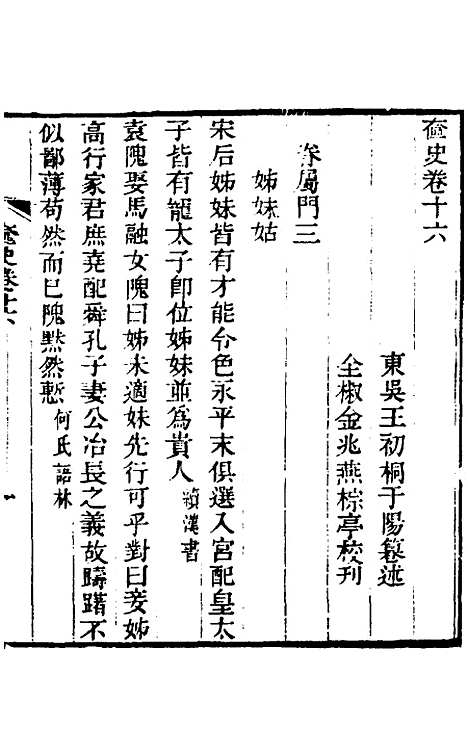 奩史卷十六
東吳王初桐于陽篹述
全椒金兆燕棕亭校刊
眷屬門三
姊妹姑
宋后姊妹皆有才能令色永平末俱選入宮配皇太
子皆有寵太子卽位姊妹並為貴人 續漢書
袁隗娶馬融女隗曰姊未適妹先行可乎對曰妾姊
高行家君庶堯配舜孔子妻公冶長之義故躊躇不
似鄙薄苟然而已隗默然慙 何氏語林
奩史卷十六
一